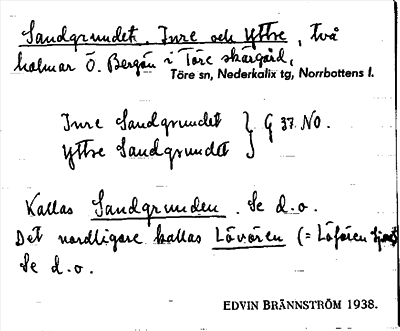 Sandgrundet, Inre och Yttre, två
holmar Ö. Bergön i Töre skärgård,
Töre sn, Nederkalix tg, Norrbottens l.
Inre Sandgrundet } G 37. NO.
Yttre Sandgrundet
Kallas Sandgrunden. Se d.o.
Det nordligare kallas Lövören (= Löfören
Se d.o.
EDVIN BRÄNNSTRÖM 1938.